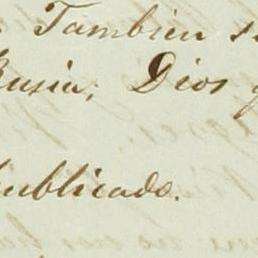 Tambien
Rusia, Dios
publicado.